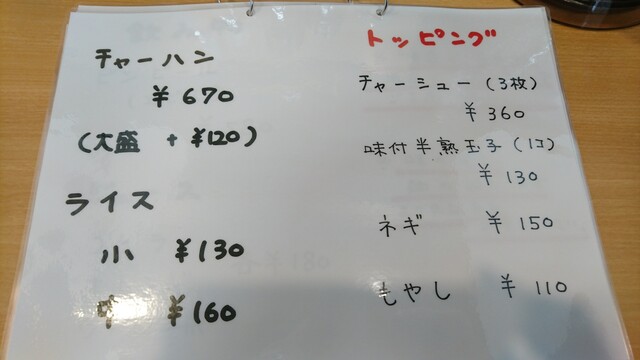 チャーハン
￥670
(大盛 + ￥120)
ライス
小 ￥130
中 ￥160
トッピング
チャーシュー (3枚)
￥360
味付半熟玉子 (1コ)
￥130
ネギ ￥150
もやし ￥110